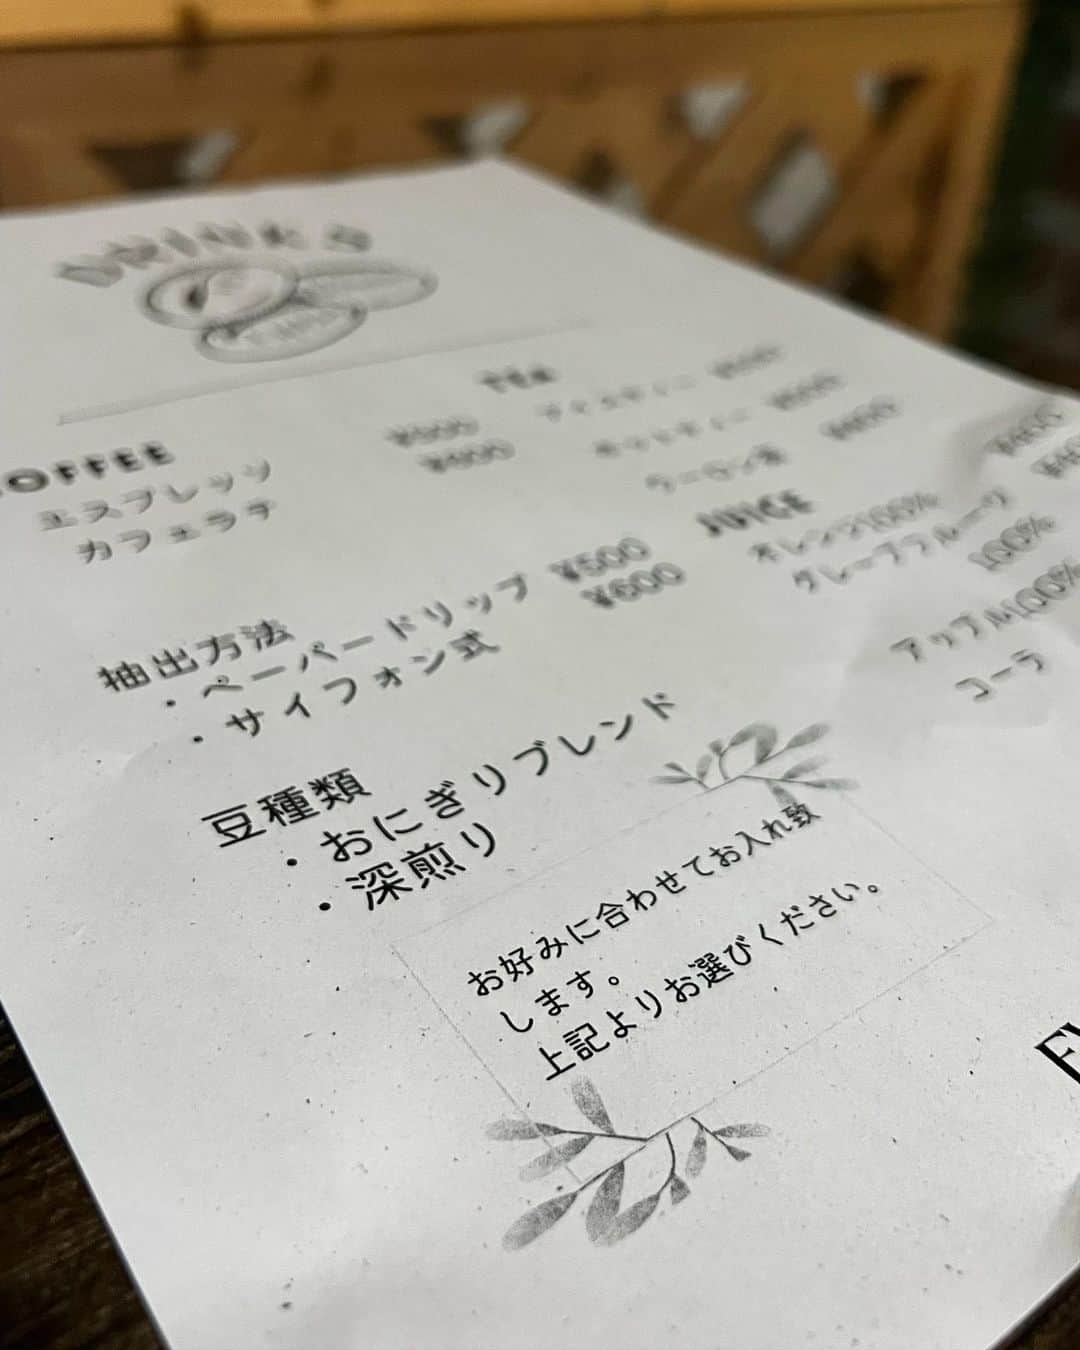 DRINKS
COFFEE
エスプレッソ
カフェラテ
抽出方法
・ペーパードリップ ¥500
・サイフォン式 ¥600
豆種類
・おにぎりブレンド
・深煎り
TEA
アイスティー
ホットティー
ウーロン茶
JUICE
オレンジ100%
グレープフルーツ
100%
アップル100%
コーラ
お好みに合わせてお入れ致
します。
上記よりお選びください。